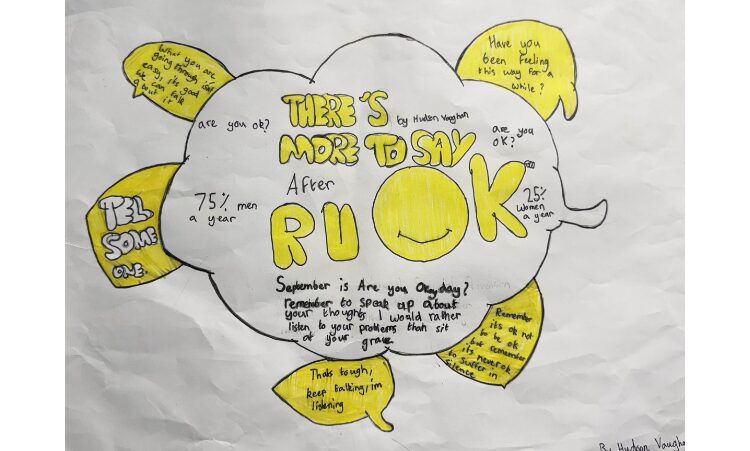 What you are
going through isn't
easy, its good
we can talk
about it
Have you
been feeling
this way for a
while?
are you ok?
THERE'S
by Hudson Vaughan
MORE TO SAY
are you
OK?
After
R U OK
75% men
a year
25%
women
a year
TEL
SOME
ONE.
September is Are you Okay day?
remember to speak up about
your thoughts I would rather
listen to your problems than sit
at your grave
Remember
its ok not
to be ok
but remember
its never ok
to suffer in
silence
Thats tough,
keep talking, im
listening
By Hudson Vaugha